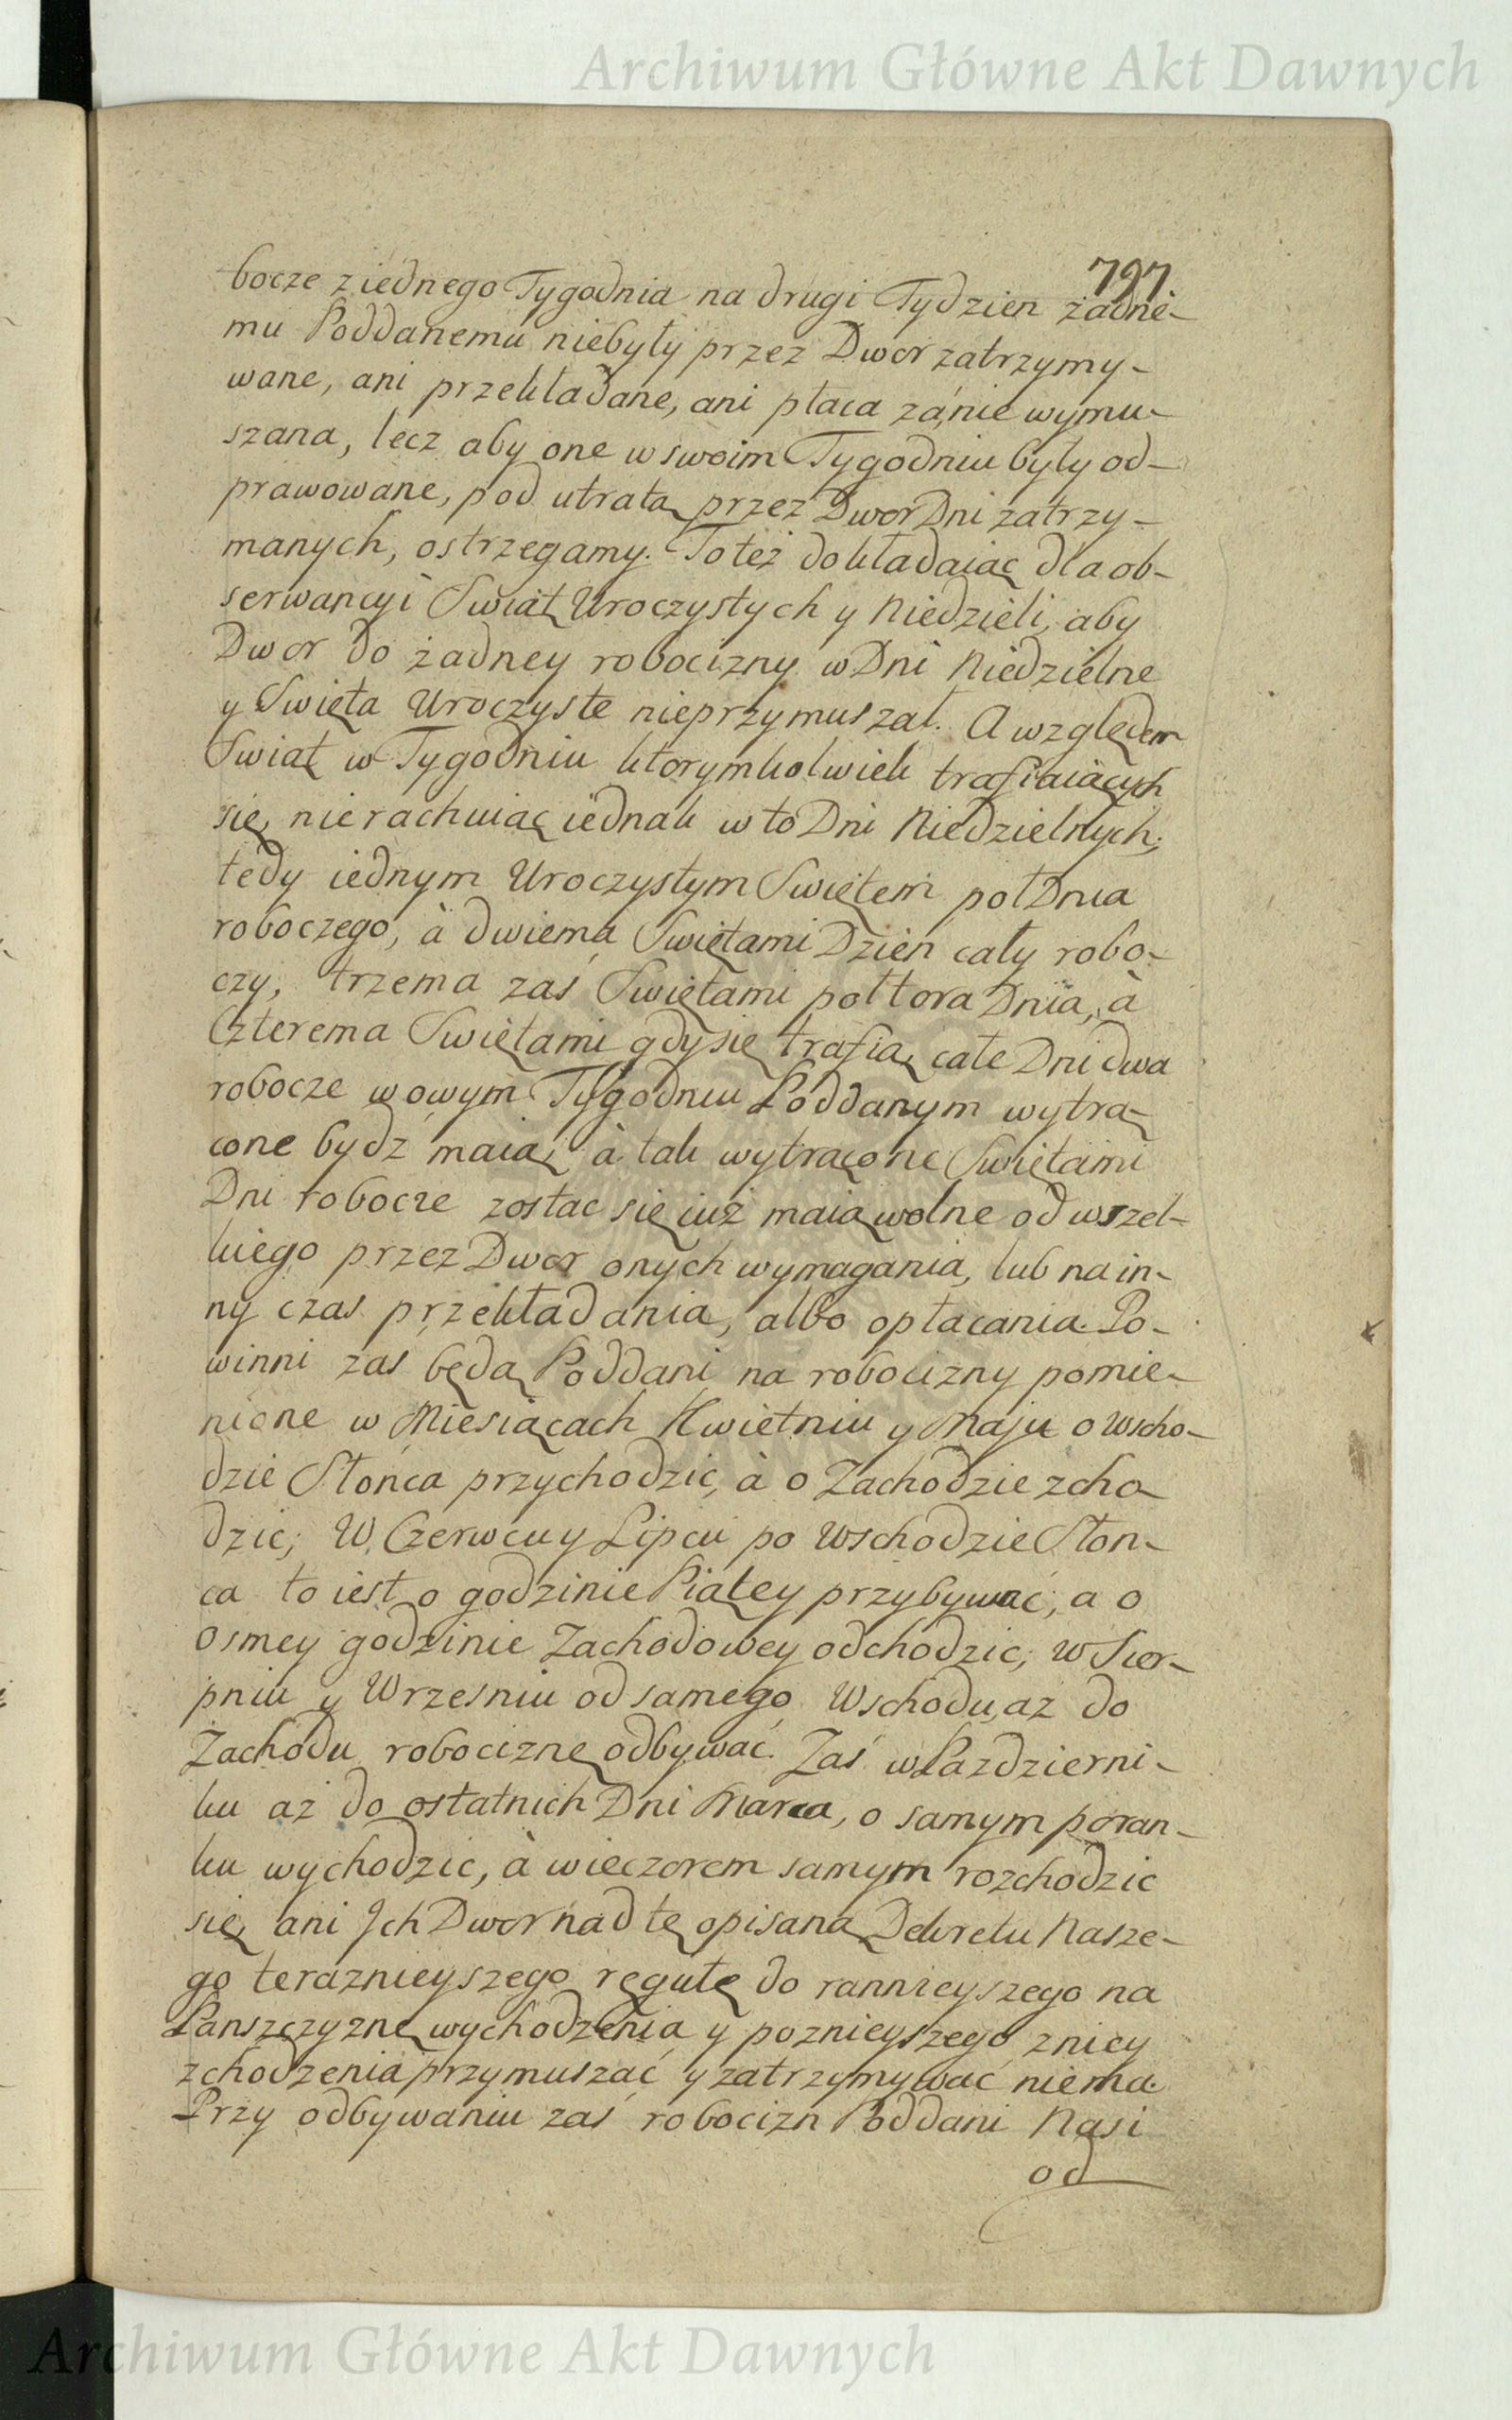 Archiwum Główne Akt Dawnych
797.
bocze z iednego Tygodnia na drugi Tydzien żadne-
mu Poddanemu niebyły przez Dwor zatrzymy-
wane, ani przekładane, ani płaca za nie wymu-
szana, lecz aby one w swoim Tygodniu były od-
prawowane, pod utratą przez Dwor Dni zatrzy-
manych, ostrzegamy. To też dokładaiąc dla ob-
serwancyi Swiąt Uroczystych y Niedzieli, aby
Dwor do żadney robocizny w Dni Niedzielne
y Swięta Uroczyste nieprzymuszał. A względem
Swiąt w Tygodniu ktorymkolwiek trafiaiących
się, nierachuiąc iednak w to Dni Niedzielnych;
tedy iednym Uroczystym Swiętem poł Dnia
roboczego, à dwiema Swiętami Dzien cały robo-
czy, trzema zaś Swiętami połtora Dnia, à
Czterema Swiętami gdy się trafią, całe Dni dwa
robocze w owym Tygodniu Poddanym wytrą-
cone bydź maią; à tak wytrącone Swiętami
Dni robocze zostac się iuż maią wolne od wszel-
kiego przez Dwor onych wymagania, lub na in-
ny czas przekładania, albo opłacania. Po-
winni zas będą Poddani na robocizny pomie-
nione w Miesiącach Kwietniu y Maju o Wscho-
dzie Słońca przychodzic, à o Zachodzie zcho-
dzic; W Czerwcu y Lipcu po Wschodzie Słon-
ca to iest o godzinie Piątey przybywać, a o
Osmey godzinie Zachodowey odchodzic; W Sier-
pniu y Wrzesniu od samego Wschodu, aż do
Zachodu robociznę odbywać. Zaś w Pazdzierni-
ku aż do ostatnich Dni Marca, o samym poran-
ku wychodzic, à wieczorem samym rozchodzic
się, ani Jch Dwor nad tę opisaną Dekretu Nasze-
go teraznieyszego regułę do rannieyszego na
Panszczyznę wychodzenia y poznieyszego z niey
zchodzenia przymuszać y zatrzymywać niema.
Przy odbywaniu zaś robocizn Poddani Nasi
od
Archiwum Główne Akt Dawnych